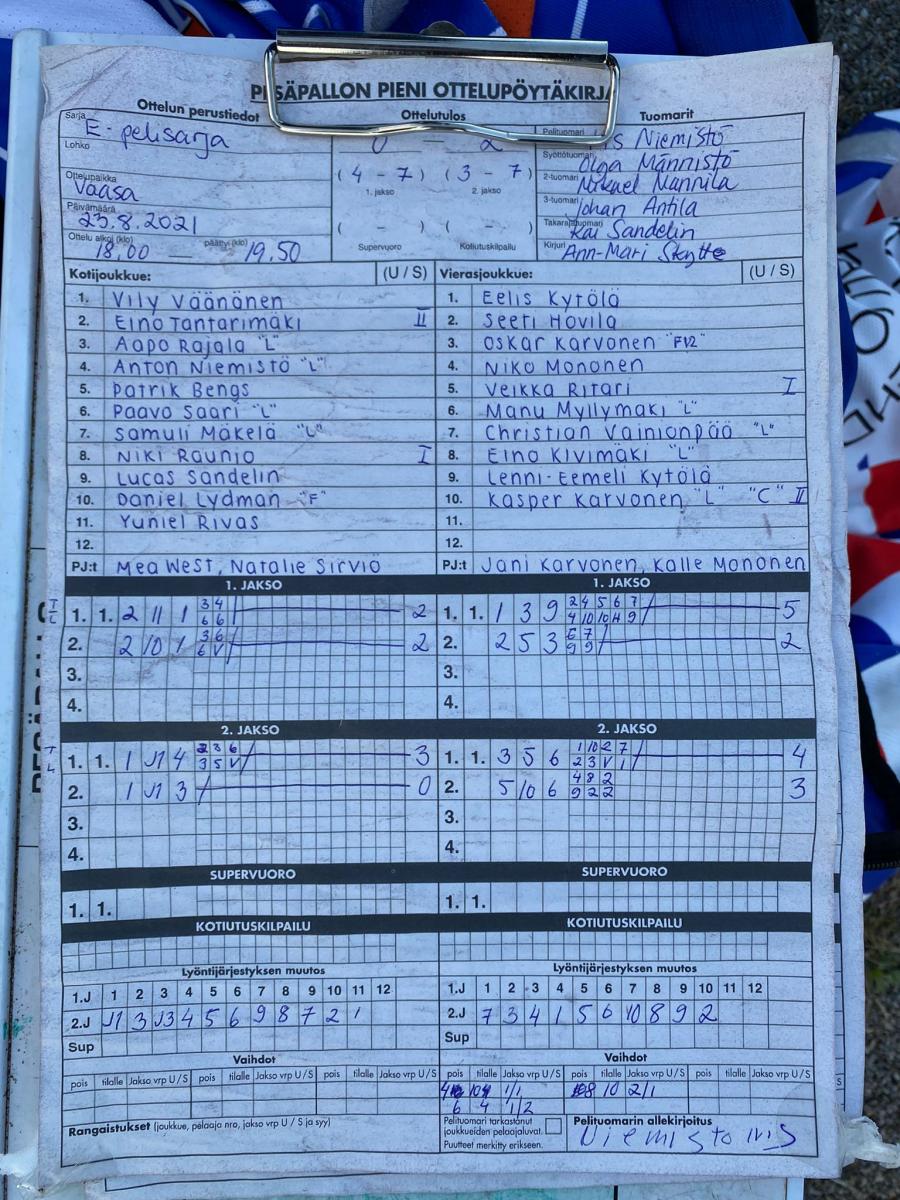 PESÄPALLON PIENI OTTELUPÖYTÄKIRJA
Ottelun perustiedot
Ottelutulos
Tuomarit
Sarja
E-pelisarja
Lohko
Ottelupaikka
Vaasa
Päivämäärä
23.8.2021
Ottelu alkoi (klo) päättyi (klo)
18.00 — 19.50
0 — 2
( 4 - 7 ) ( 3 - 7 )
1. jakso 2. jakso
( - ) ( - )
Supervuoro Kotiutuskilpailu
Pelituomari Niemistö
Syöttötuomari Olga Männistö
2-tuomari Mikael Mannila
3-tuomari Johan Antila
Takarajatuomari Kai Sandelin
Kirjuri Ann-Mari Skytte
Kotijoukkue: (U / S)
1. Vily Väänänen
2. Eino Tantarimäki II
3. Aapo Rajala "L"
4. Anton Niemistö "L"
5. Patrik Bengs
6. Paavo Saari "L"
7. Samuli Mäkelä "L"
8. Niki Raunio I
9. Lucas Sandelin
10. Daniel Lydman "F"
11. Yuniel Rivas
12.
PJ:t Mea West, Natalie Sirviö
Vierasjoukkue: (U / S)
1. Eelis Kytölä
2. Seeti Hovila
3. Oskar Karvonen "F12"
4. Niko Mononen
5. Veikka Ritari I
6. Manu Myllymäki "L"
7. Christian Vainionpää "L"
8. Eino Kivimäki "L"
9. Lenni-Eemeli Kytölä
10. Kasper Karvonen "L" "C" II
11.
12.
PJ:t Jani Karvonen, Kalle Mononen
1. JAKSO
1. 1. 2 11 1 3 4 2
6 6
2. 2 10 1 3 6 2
6 V
3.
4.
1. JAKSO
1. 1. 1 3 9 2 4 5 6 7 5
2. 2 5 3 6 7 2
9 9
3.
4.
2. JAKSO
1. 1. 1 J1 4 2 3 6 3
3 5 V
2. 1 J1 3 0
3.
4.
2. JAKSO
1. 1. 3 5 6 1 10 2 7 4
2 3 V 1
2. 5 10 6 4 8 2 3
9 2 2
3.
4.
SUPERVUORO
1. 1.
SUPERVUORO
1. 1.
KOTIUTUSKILPAILU
KOTIUTUSKILPAILU
Lyöntijärjestyksen muutos
1.J 1 2 3 4 5 6 7 8 9 10 11 12
2.J J1 3 J3 4 5 6 9 8 7 2 1
Sup
Lyöntijärjestyksen muutos
1.J 1 2 3 4 5 6 7 8 9 10 11 12
2.J 7 3 4 1 5 6 10 8 9 2
Sup
Vaihdot
pois tilalle Jakso vrp U / S pois tilalle Jakso vrp U / S pois tilalle Jakso vrp U / S
Vaihdot
pois tilalle Jakso vrp U / S pois tilalle Jakso vrp U / S pois tilalle Jakso vrp U / S
1/1 8 10 2/1
6 4 1/2
Rangaistukset (joukkue, pelaaja nro, jakso vrp U / S ja syy)
Pelituomari tarkastanut
joukkueiden pelaajaluvat.
Puutteet merkitty erikseen.
Pelituomarin allekirjoitus
Niemistö Iiris